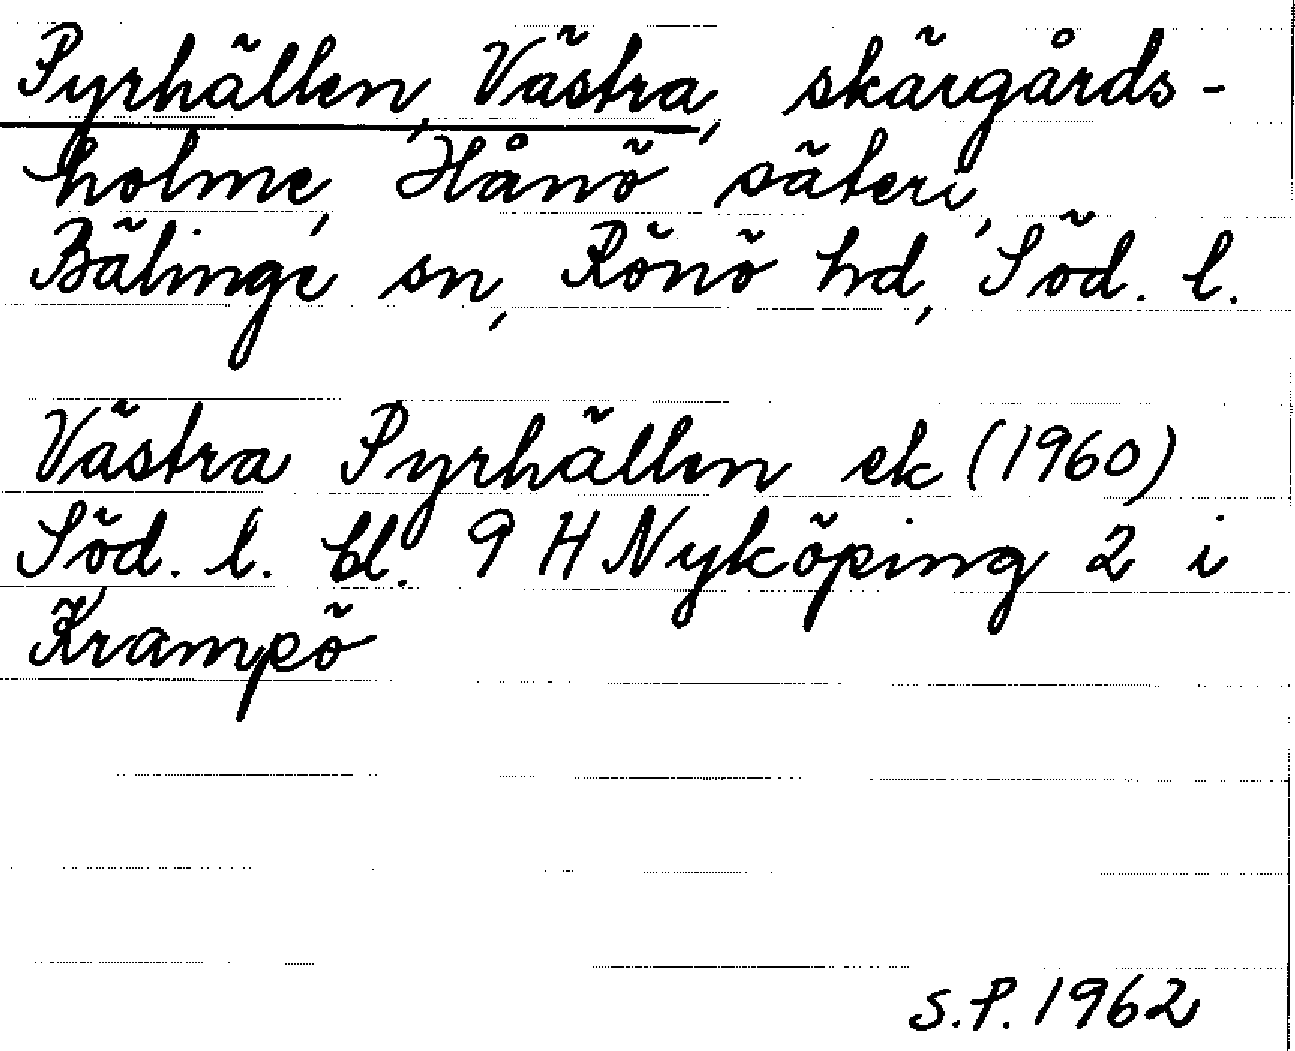 Pyrhällen, Västra, skärgårds-
holme, Hånö säteri,
Bälinge sn, Rönö hd, Söd. l.
Västra Pyrhällen ek (1960)
Söd. l. bl. 9 H Nyköping 2 i
Krampö
S.P. 1962